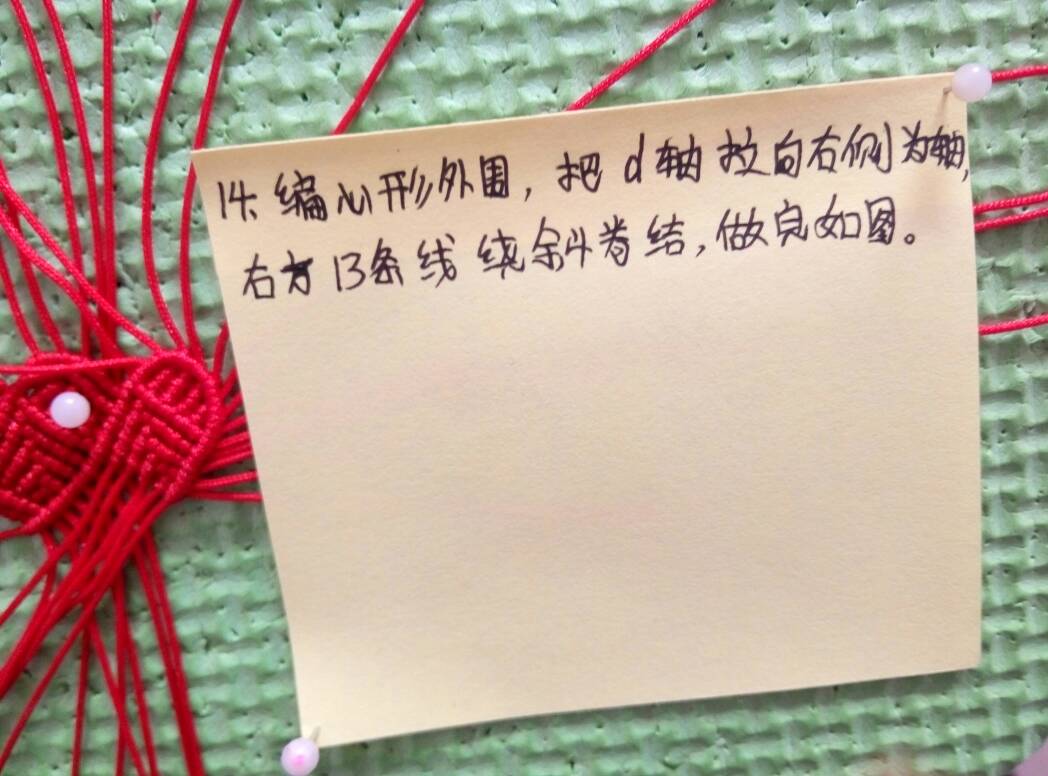 14、编心形外围，把d轴拉向右侧为轴，
右方13条线绕斜卷结，做完如图。